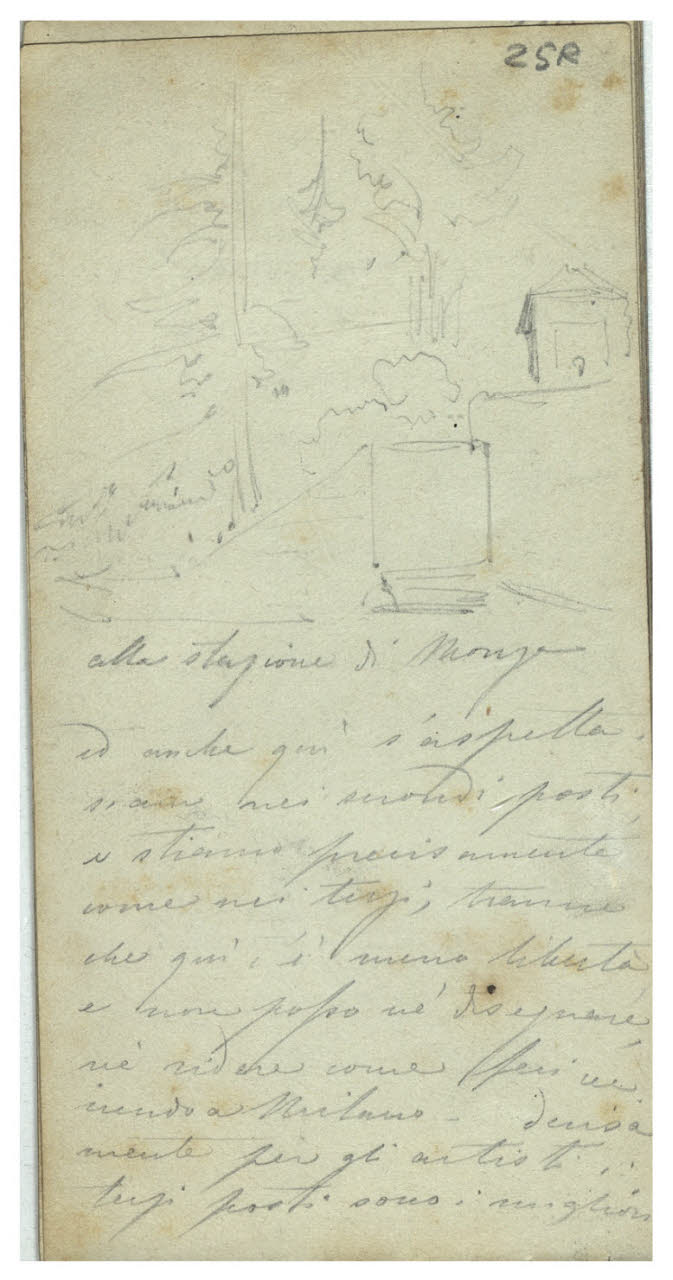 25R
alla stazione di Monza
ed anche qui s'aspetta.
siamo nei secondi posti,
e stiamo precisamente
come nei terzi, tranne
che qui c'è meno libertà
e non posso nè disegnare,
nè ridere come feci ve
nendo a Milano -
mente per gli artisti i
terzi posti sono i migliori